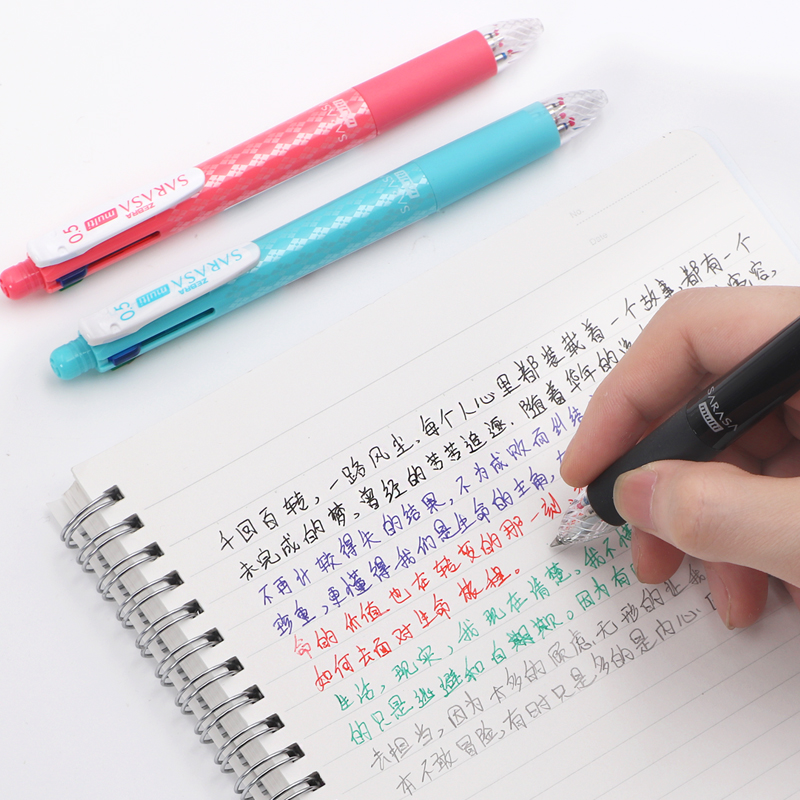 SARASA multi
ZEBRA
SARASA
multi
0.5
SARASA multi
ZEBRA
SARASA
multi
0.5
No.
Date
SARASA
multi
千回百转，一路风尘，每个人心里都装载着一个故事，都有一个
未完成的梦，曾经的苦苦追逐，随着华年的
不再计较得失的结果，不为成败而纠结
珍重，更懂得我们是生命的主角，
命的价值也在转变的那一刻
如何去面对生命旅程。
生活，现实，我现在清楚，我不
的只是逃避和自欺欺。因为有
去担当，因为太多的顾虑，无形的让我
有不敢冒险，有时只是多的是内心